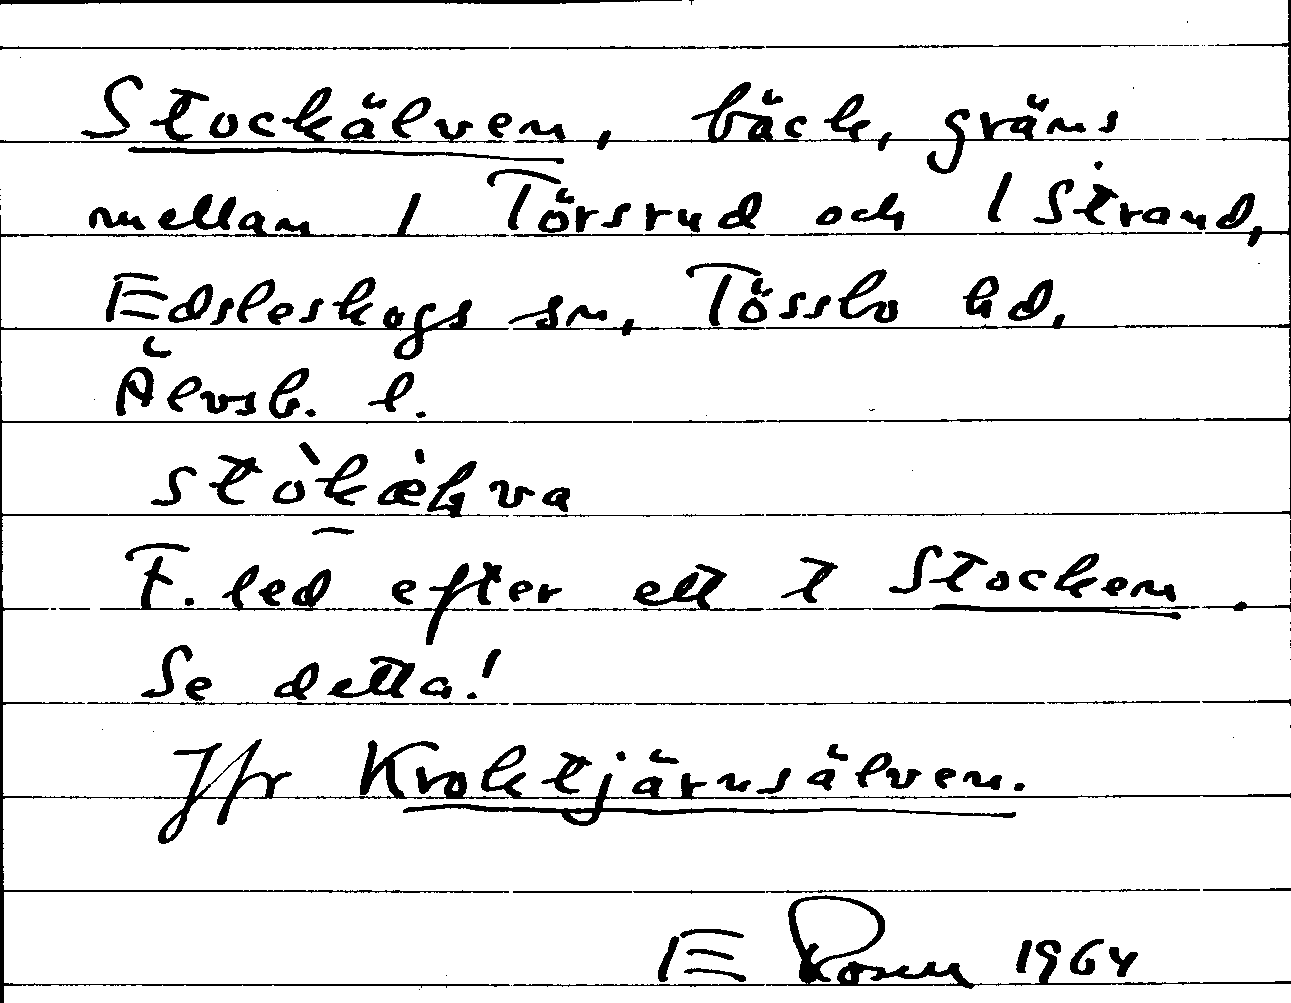 Stockälven, bäck, gräns
mellan 1 Törsrud och 1 Strand,
Edsleskogs sn, Tössbo hd,
Älvsb. l.
F. led efter ett t Stocken.
Se detta!
Jfr Kroktjärnsälven.
E Rosen 1964